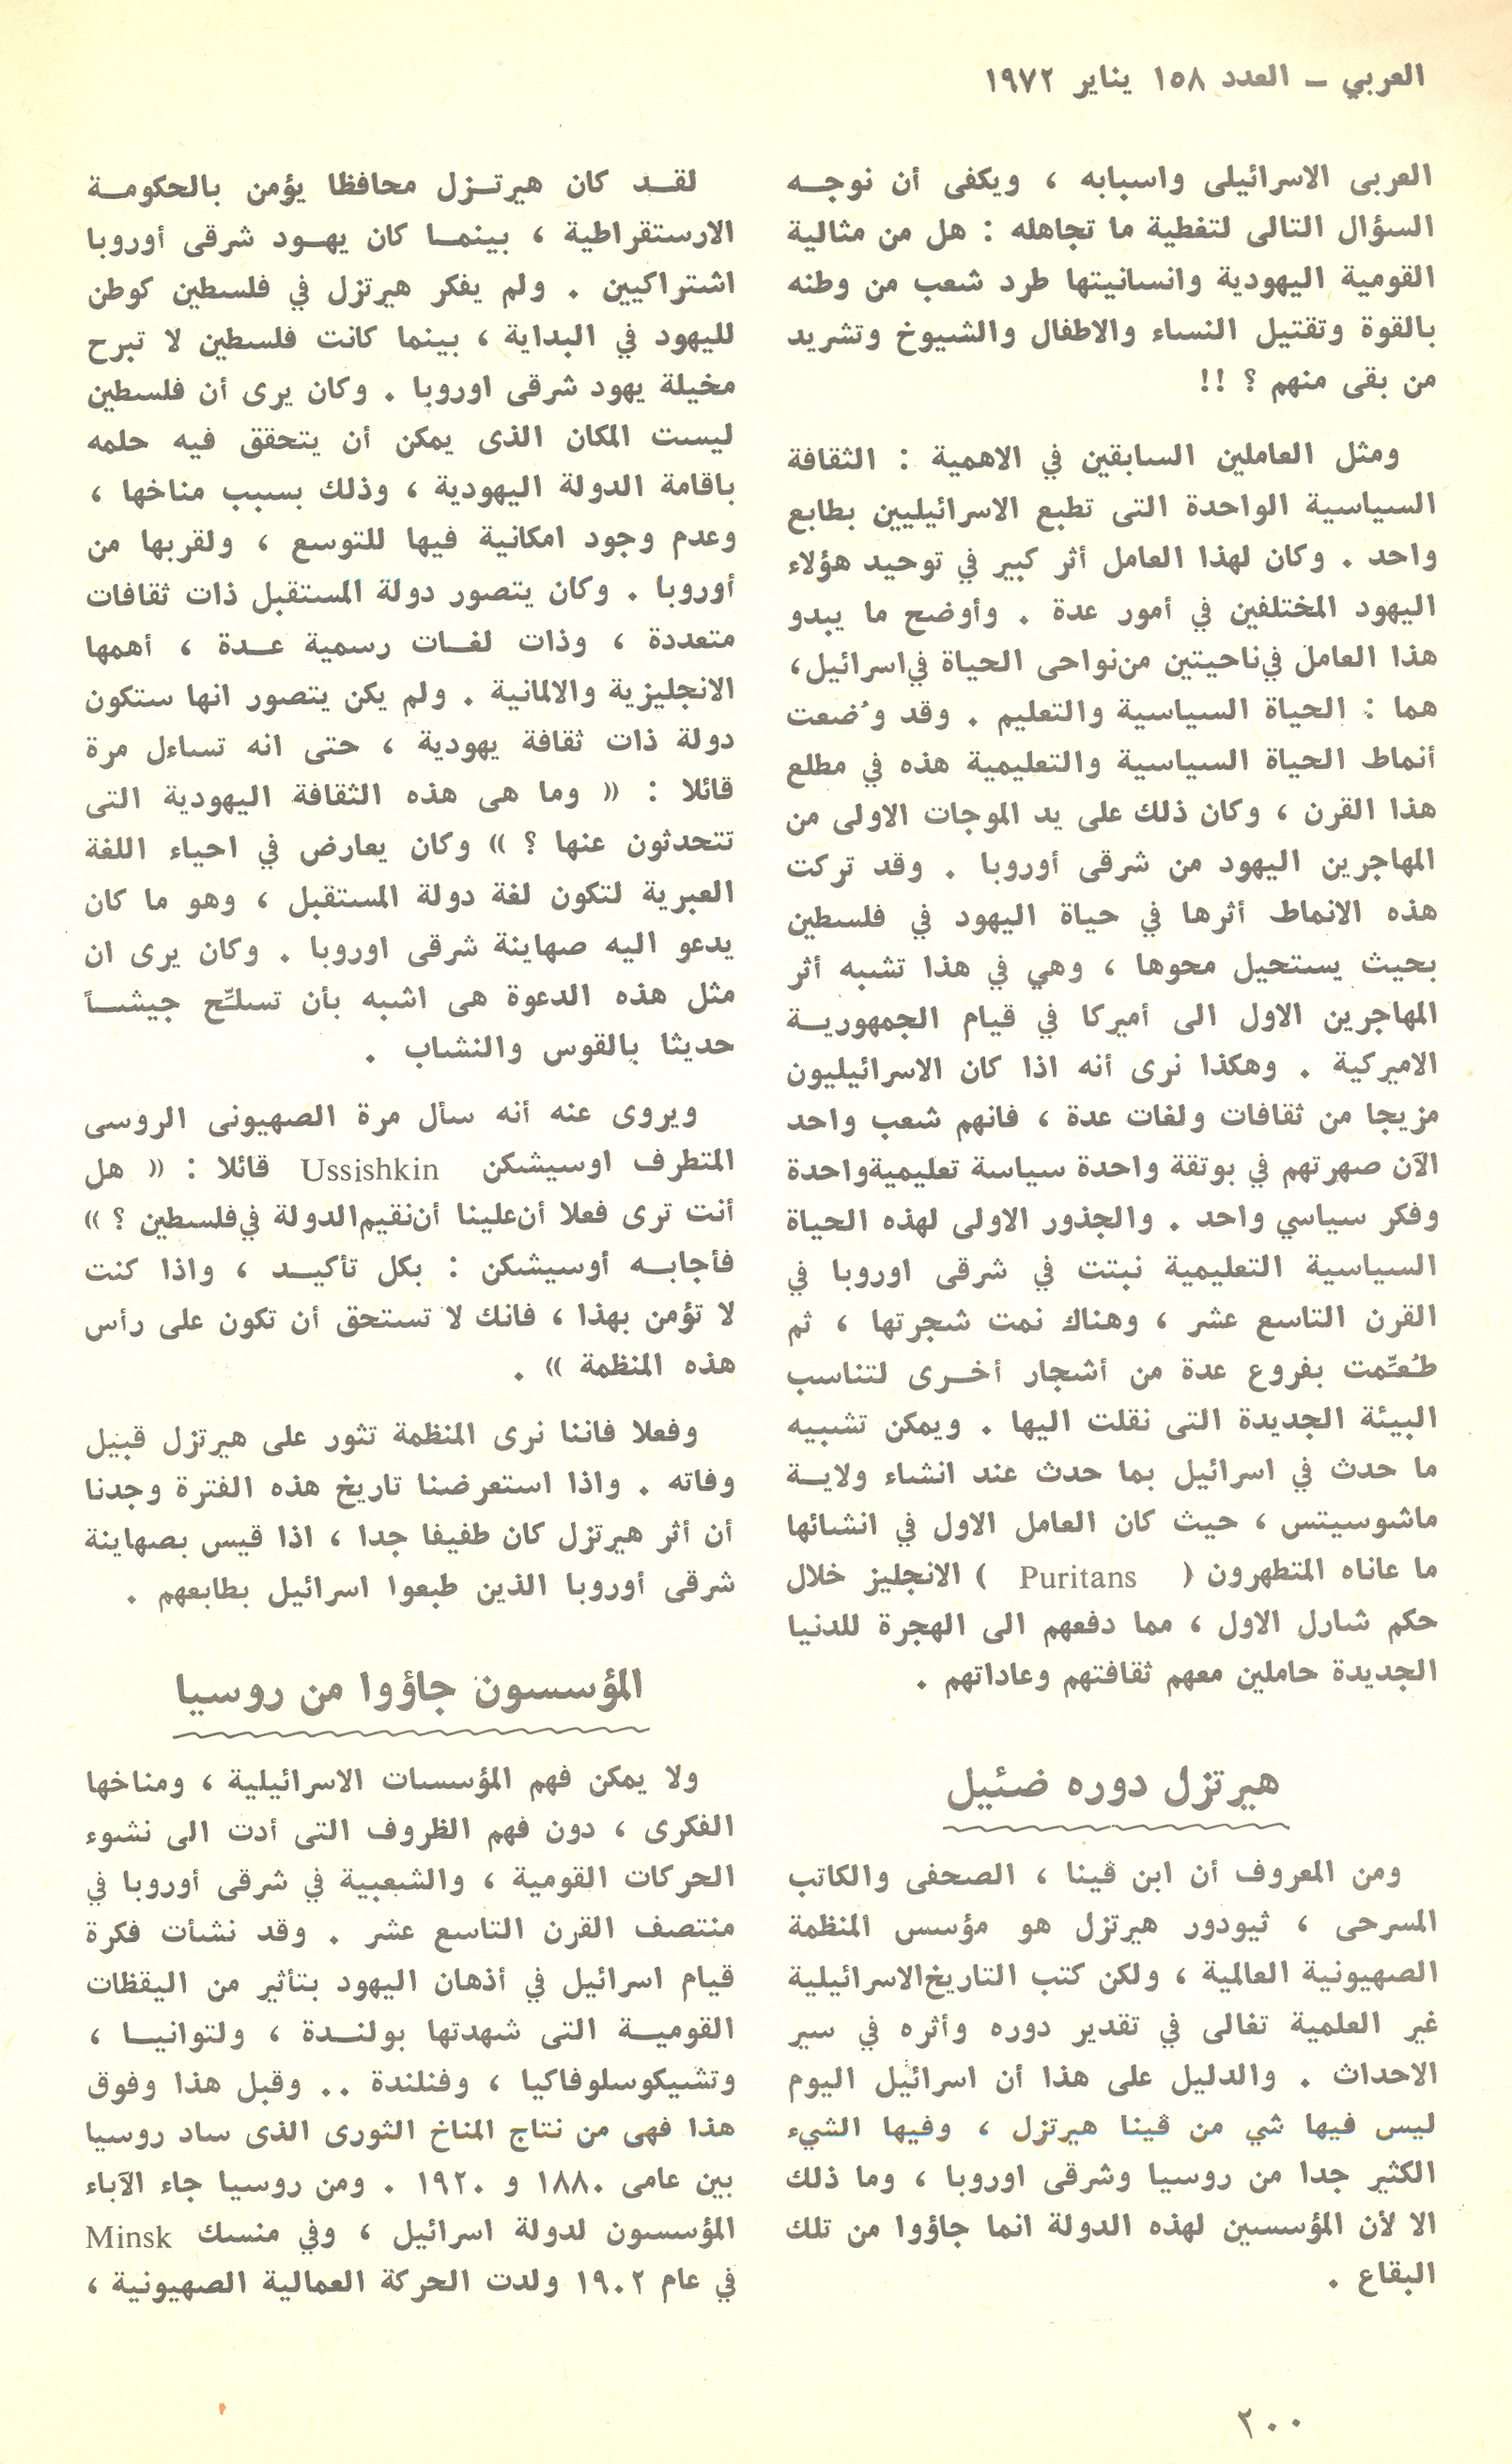 العربي ـ العدد ١٥٨ يناير ١٩٧٢
العربى الاسرائيلى واسبابه ، ويكفى أن نوجه
السؤال التالى لتغطية ما تجاهله : هل من مثالية
القومية اليهودية وانسانيتها طرد شعب من وطنه
بالقوة وتقتيل النساء والاطفال والشيوخ وتشريد
من بقى منهم ؟ !!
ومثل العاملين السابقين في الاهمية : الثقافة
السياسية الواحدة التى تطبع الاسرائيليين بطابع
واحد . وكان لهذا العامل أثر كبير في توحيد هؤلاء
اليهود المختلفين في أمور عدة . وأوضح ما يبدو
هذا العامل في ناحيتين من نواحى الحياة في اسرائيل ،
هما : الحياة السياسية والتعليم . وقد وُضعت
أنماط الحياة السياسية والتعليمية هذه في مطلع
هذا القرن ، وكان ذلك على يد الموجات الاولى من
المهاجرين اليهود من شرقى أوروبا . وقد تركت
هذه الانماط أثرها في حياة اليهود في فلسطين
بحيث يستحيل محوها ، وهي في هذا تشبه أثر
المهاجرين الاول الى أميركا في قيام الجمهورية
الاميركية . وهكذا نرى أنه اذا كان الاسرائيليون
مزيجا من ثقافات ولغات عدة ، فانهم شعب واحد
الآن صهرتهم في بوتقة واحدة سياسة تعليمية واحدة
وفكر سياسي واحد . والجذور الاولى لهذه الحياة
السياسية التعليمية نبتت في شرقى اوروبا في
القرن التاسع عشر ، وهناك نمت شجرتها ، ثم
طُعِّمت بفروع عدة من أشجار أخرى لتناسب
البيئة الجديدة التى نقلت اليها . ويمكن تشبيه
ما حدث في اسرائيل بما حدث عند انشاء ولاية
ماشوسيتس ، حيث كان العامل الاول في انشائها
ما عاناه المتطهرون ( Puritans ) الانجليز خلال
حكم شارل الاول ، مما دفعهم الى الهجرة للدنيا
الجديدة حاملين معهم ثقافتهم وعاداتهم .
هيرتزل دوره ضئيل
ومن المعروف أن ابن ڤينا ، الصحفى والكاتب
المسرحى ، ثيودور هيرتزل هو مؤسس المنظمة
الصهيونية العالمية ، ولكن كتب التاريخ الاسرائيلية
غير العلمية تغالى في تقدير دوره وأثره في سير
الاحداث . والدليل على هذا أن اسرائيل اليوم
ليس فيها شي من ڤينا هيرتزل ، وفيها الشيء
الكثير جدا من روسيا وشرقى اوروبا ، وما ذلك
الا لأن المؤسسين لهذه الدولة انما جاؤوا من تلك
البقاع .
لقد كان هيرتزل محافظا يؤمن بالحكومة
الارستقراطية ، بينما كان يهود شرقى أوروبا
اشتراكيين . ولم يفكر هيرتزل في فلسطين كوطن
لليهود في البداية ، بينما كانت فلسطين لا تبرح
مخيلة يهود شرقى اوروبا . وكان يرى أن فلسطين
ليست المكان الذى يمكن أن يتحقق فيه حلمه
باقامة الدولة اليهودية ، وذلك بسبب مناخها ،
وعدم وجود امكانية فيها للتوسع ، ولقربها من
أوروبا . وكان يتصور دولة المستقبل ذات ثقافات
متعددة ، وذات لغات رسمية عدة ، أهمها
الانجليزية والالمانية . ولم يكن يتصور انها ستكون
دولة ذات ثقافة يهودية ، حتى انه تساءل مرة
قائلا : « وما هى هذه الثقافة اليهودية التى
تتحدثون عنها ؟ » وكان يعارض في احياء اللغة
العبرية لتكون لغة دولة المستقبل ، وهو ما كان
يدعو اليه صهاينة شرقى اوروبا . وكان يرى ان
مثل هذه الدعوة هى اشبه بأن تسلِّح جيشاً
حديثا بالقوس والنشاب .
ويروى عنه أنه سأل مرة الصهيونى الروسى
المتطرف اوسيشكن Ussishkin قائلا : « هل
أنت ترى فعلا أن علينا أن نقيم الدولة في فلسطين ؟ »
فأجابه أوسيشكن : بكل تأكيد ، واذا كنت
لا تؤمن بهذا ، فانك لا تستحق أن تكون على رأس
هذه المنظمة » .
وفعلا فاننا نرى المنظمة تثور على هيرتزل قبيل
وفاته . واذا استعرضنا تاريخ هذه الفترة وجدنا
أن أثر هيرتزل كان طفيفا جدا ، اذا قيس بصهاينة
شرقى أوروبا الذين طبعوا اسرائيل بطابعهم .
المؤسسون جاؤوا من روسيا
ولا يمكن فهم المؤسسات الاسرائيلية ، ومناخها
الفكرى ، دون فهم الظروف التى أدت الى نشوء
الحركات القومية ، والشعبية في شرقى أوروبا في
منتصف القرن التاسع عشر . وقد نشأت فكرة
قيام اسرائيل في أذهان اليهود بتأثير من اليقظات
القومية التى شهدتها بولندة ، ولتوانيا ،
وتشيكوسلوفاكيا ، وفنلندة .. وقبل هذا وفوق
هذا فهى من نتاج المناخ الثورى الذى ساد روسيا
بين عامى ١٨٨٠ و ١٩٢٠ . ومن روسيا جاء الآباء
المؤسسون لدولة اسرائيل ، وفي منسك Minsk
في عام ١٩٠٢ ولدت الحركة العمالية الصهيونية ،
٢٠٠